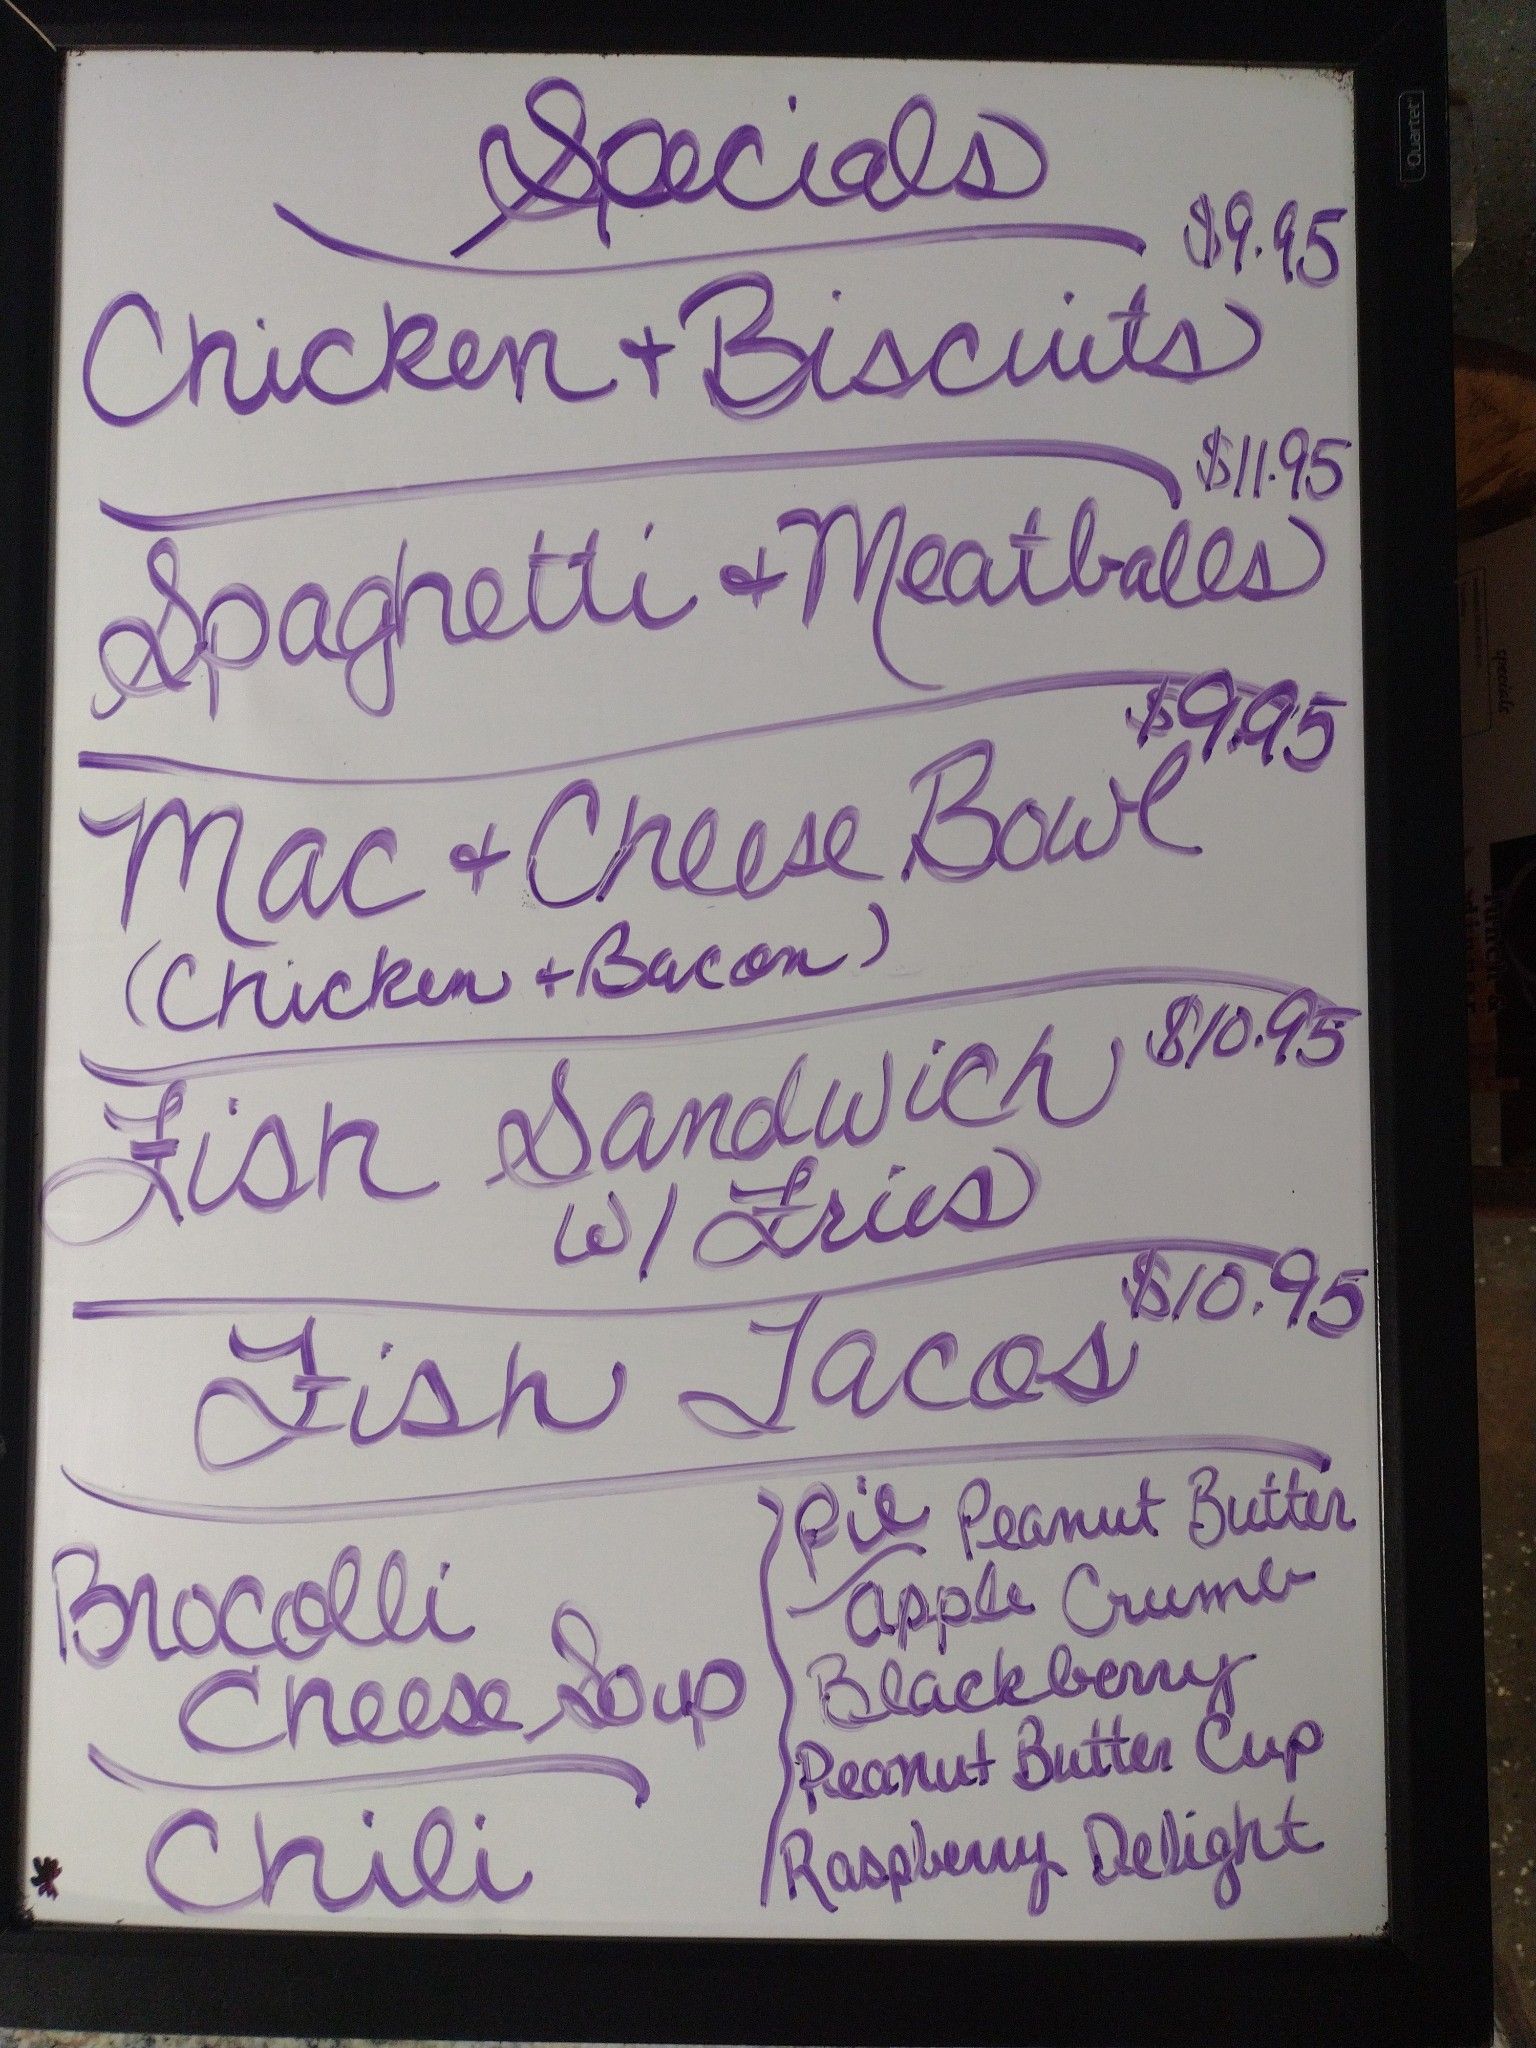 Specials
$9.95
Chicken + Biscuits
$11.95
Spaghetti + Meatballs
$9.95
Mac + Cheese Bowl
(Chicken + Bacon)
$10.95
Fish Sandwich
w/ Fries
$10.95
Fish Tacos
Brocolli
Cheese Soup
Chili
Pie Peanut Butter
Apple Crumb
Blackberry
Peanut Butter Cup
Raspberry Delight
Quartet
specials